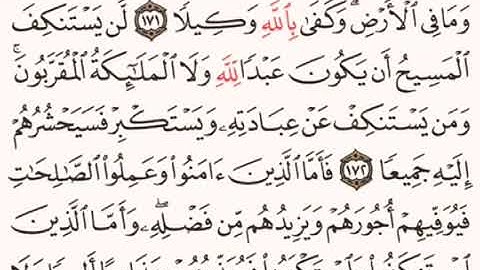 وَمَا فِي ٱلْأَرْضِۗ وَكَفَىٰ بِٱللَّهِ وَكِيلًا ١٧١ لَّن يَسْتَنكِفَ
ٱلْمَسِيحُ أَن يَكُونَ عَبْدًا لِّلَّهِ وَلَا ٱلْمَلَٰٓئِكَةُ ٱلْمُقَرَّبُونَۚ
وَمَن يَسْتَنكِفْ عَنْ عِبَادَتِهِۦ وَيَسْتَكْبِرْ فَسَيَحْشُرُهُمْ
إِلَيْهِ جَمِيعًا ١٧٢ فَأَمَّا ٱلَّذِينَ ءَامَنُوا۟ وَعَمِلُوا۟ ٱلصَّٰلِحَٰتِ
فَيُوَفِّيهِمْ أُجُورَهُمْ وَيَزِيدُهُم مِّن فَضْلِهِۦۖ وَأَمَّا ٱلَّذِينَ